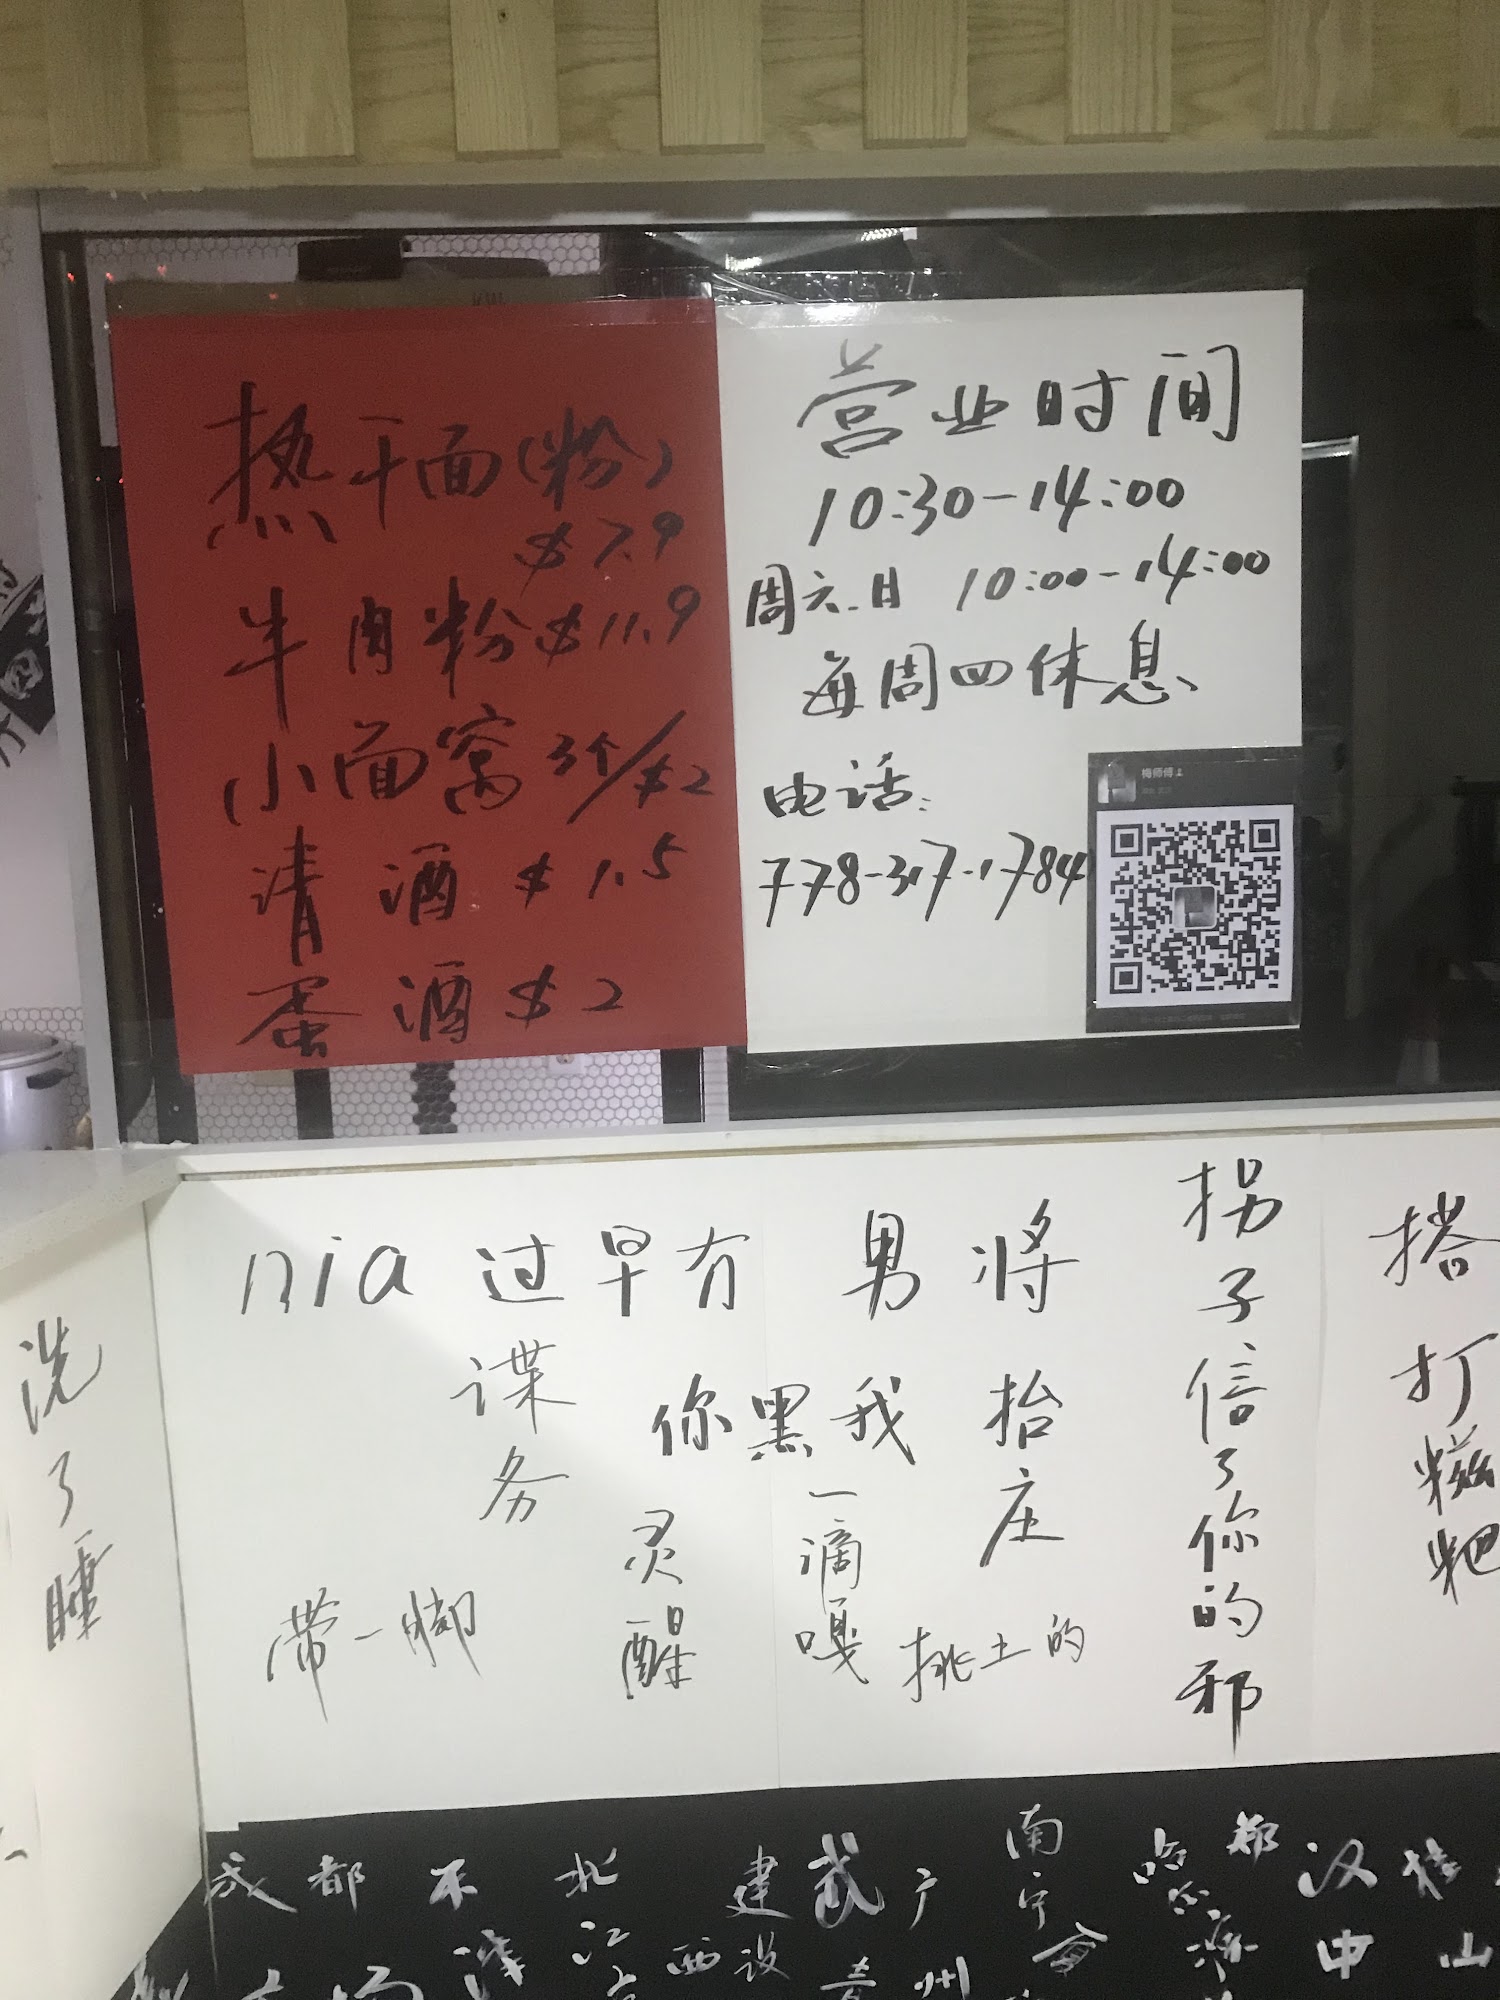 热干面(粉)
$7.9
牛肉粉$11.9
小面窝 3个/$2
清酒 $1.5
蛋酒 $2
营业时间
10:30-14:00
周六.日 10:00-14:00
每周四休息
电话:
778-317-1784
梅师傅
洗了睡
nia
过早冇
谍务
带一脚
你黑我
一滴嘎
灵醒
男将
抬庄
挑土的
拐子信了你的邪
搭
打糍粑
成都
北
建设
武
广州
南宁
西
汉中
山